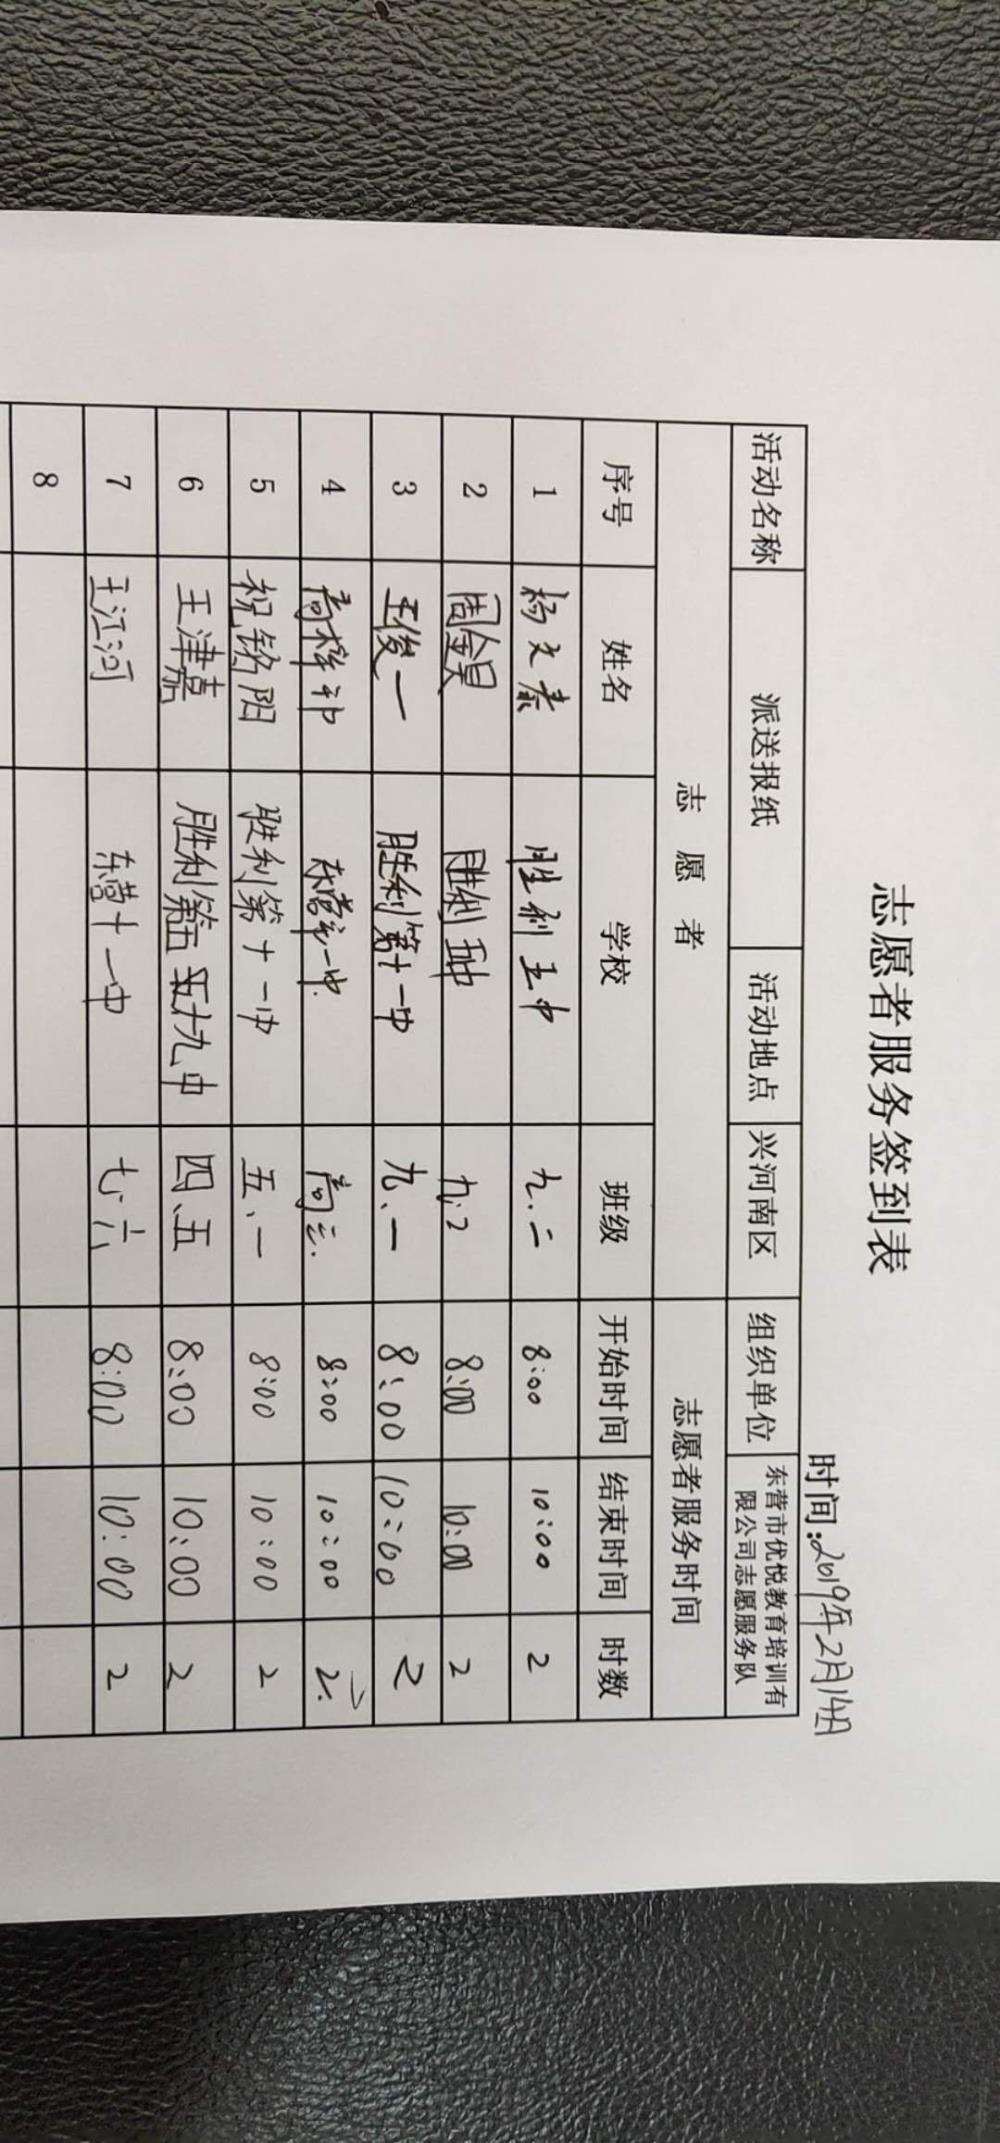 志愿者服务签到表
时间:2019年2月14日
活动名称 派送报纸 活动地点 兴河南区 组织单位 东营市优悦教育培训有限公司志愿服务队
志 愿 者 志愿者服务时间
序号 姓名 学校 班级 开始时间 结束时间 时数
1 杨文泰 胜利五中 九.二 8:00 10:00 2
2 周金昊 胜利五中 九.2 8:00 10:00 2
3 王俊一 胜利第十一中 九、一 8:00 10:00 2
4 高梓祎 高三. 8:00 10:00 2.
5 祝铭阳 胜利第十一中 五、一 8:00 10:00 2
6 王津嘉 胜利第 十九中 四、五 8:00 10:00 2
7 王江河 东营十一中 七.六 8:00 10:00 2
8